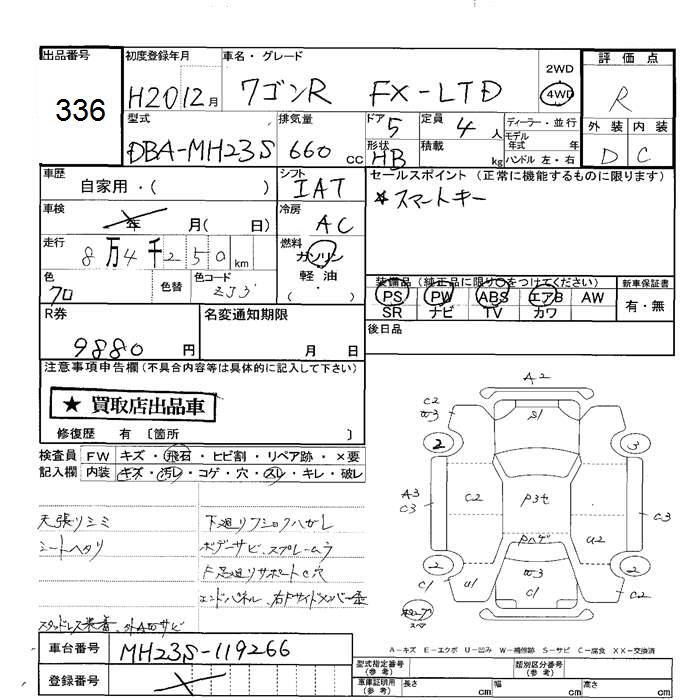 出品番号
336
初度登録年月
H20 12月
車名・グレード
ワゴンR FX-LTD
2WD
4WD
評価点
R
外装 内装
D C
型式
DBA-MH23S
排気量
660 cc
ドア 5
形状 HB
定員 4 人
積載 kg
ディーラー・並行
モデル
年式 年
ハンドル 左・右
車歴
自家用・( )
シフト
IAT
セールスポイント (正常に機能するものに限ります)
★スマートキー
車検
年 月( 日)
冷房
AC
走行
8万4千250km
燃料
ガソリン
軽油
( ・ )
色
クロ
色替
色コード
ZJ3
装備品(純正品に限り○をつけてください)
PS PW ABS エアB AW
SR ナビ TV カワ
新車保証書
有・無
R券
9880円
名変通知期限
月 日
後日品
注意事項申告欄(不具合内容等は具体的に記入して下さい)
★ 買取店出品車
修復歴 有 〔箇所 〕
検査員 FW キズ・飛石・ヒビ割・リペア跡・×要
記入欄 内装 キズ・汚レ・コゲ・穴・スレ・キレ・破レ
天張リシミ
シートヘタリ
下廻りフショクハガレ
ボデーサビ、スプレームラ
F足廻りサポートC穴
エンドパネル、右Fサイドメンバー歪
スタッドレス装着、外AWサビ
A2
C2
W3
S1
2
3
A3
C3
C2
P3t
C3
Pハゲ
U2
2
2
C1
U1
W3
C1
C2
スペア
A-キズ E-エクボ U-凹み W-補修跡 S-サビ C-腐食 XX-交換済
車台番号
MH23S-119266
登録番号
型式指定番号
(参考)
類別区分番号
(参考)
車庫証明用
(参考)
長さ cm
幅 cm
高さ cm